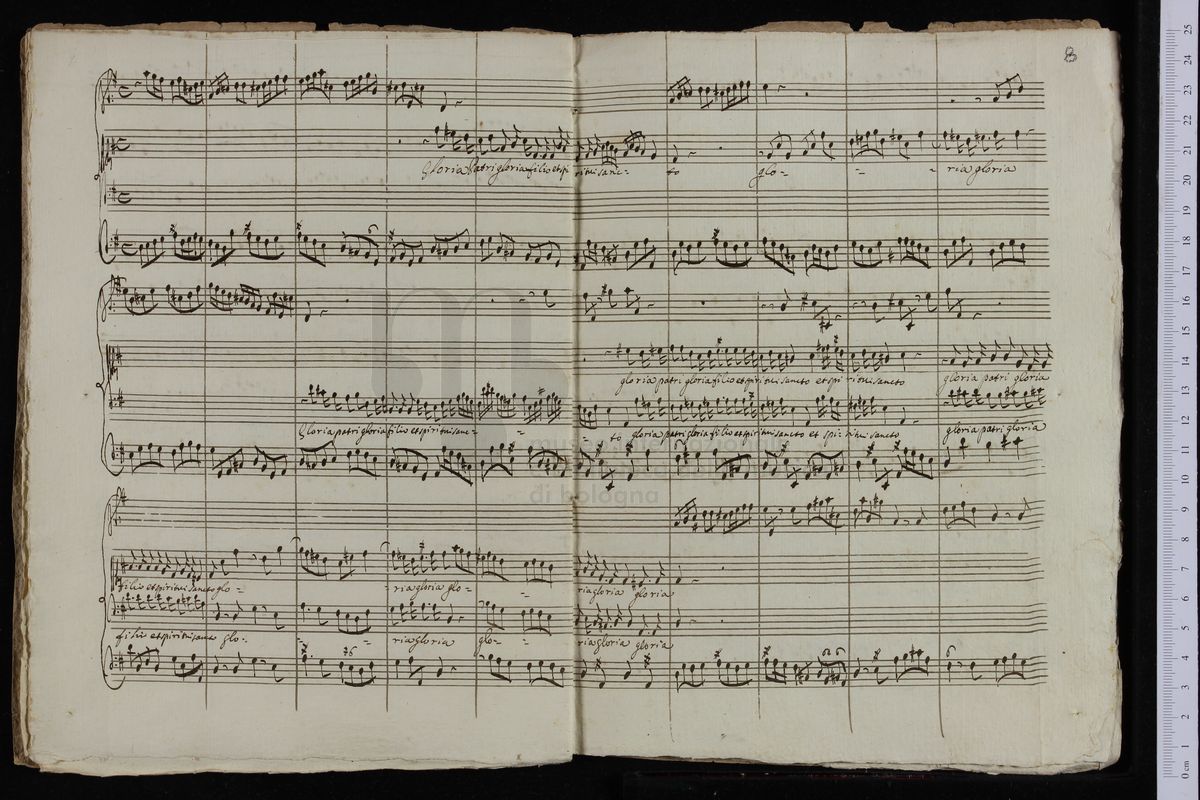 8
Gloria Patri gloria filio et spi ritui sanc - to glo - - - ria gloria
gloria patri gloria filio et spiritui sancto et spi ritui sancto gloria patri gloria
Gloria patri gloria filio et spiritui sanc - - to gloria patri gloria filio et spiritui sancto et spi - ritui sancto gloria patri gloria
museo internazionale
di bologna
filio et spiritui sancto glo - - ria gloria glo - - ria gloria gloria
filio et spiritui sancto glo - - - ria gloria glo - - ria gloria gloria
76
0 cm 1 2 3 4 5 6 7 8 9 10 11 12 13 14 15 16 17 18 19 20 21 22 23 24 25